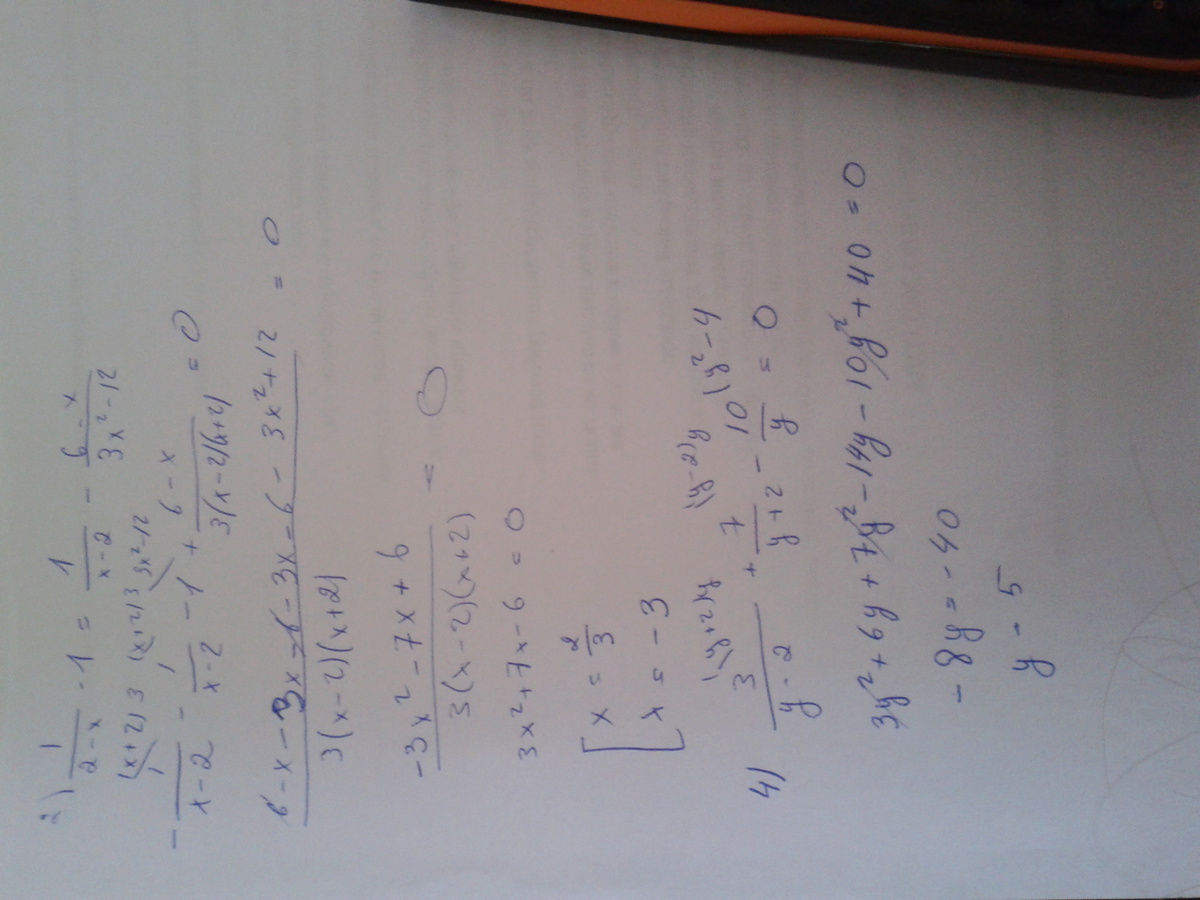 2) 1/(2-x) - 1 = 1/(x-2) - (6-x)/(3x²-12)
(x+2)3 (x+2)3 3x²-12
- 1/(x-2) - 1/(x-2) - 1 + (6-x)/(3(x-2)(x+2)) = 0
(6-x-3x-6-3x-6-3x²+12)/(3(x-2)(x+2)) = 0
(-3x²-7x+6)/(3(x-2)(x+2)) = 0
3x²+7x-6=0
[ x = 2/3
x = -3
(y+2)y (y-2)y (y²-4
4) 3/(y-2) + 7/(y+2) - 10/y = 0
3y²+6y+7y²-14y-10y²+40=0
-8y=-40
y-5